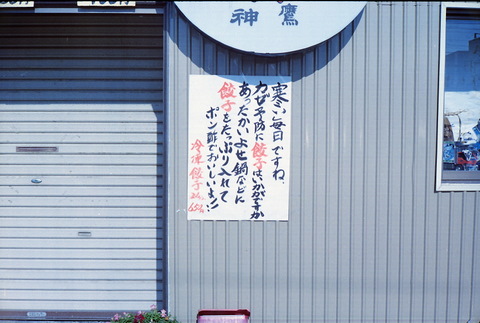 鷹神
寒い毎日ですね、
カゼ予防に餃子はいかがですか
あったかいよせ鍋などに
餃子をたっぷり入れて
ポン酢でおいしいよ!!
冷凍餃子